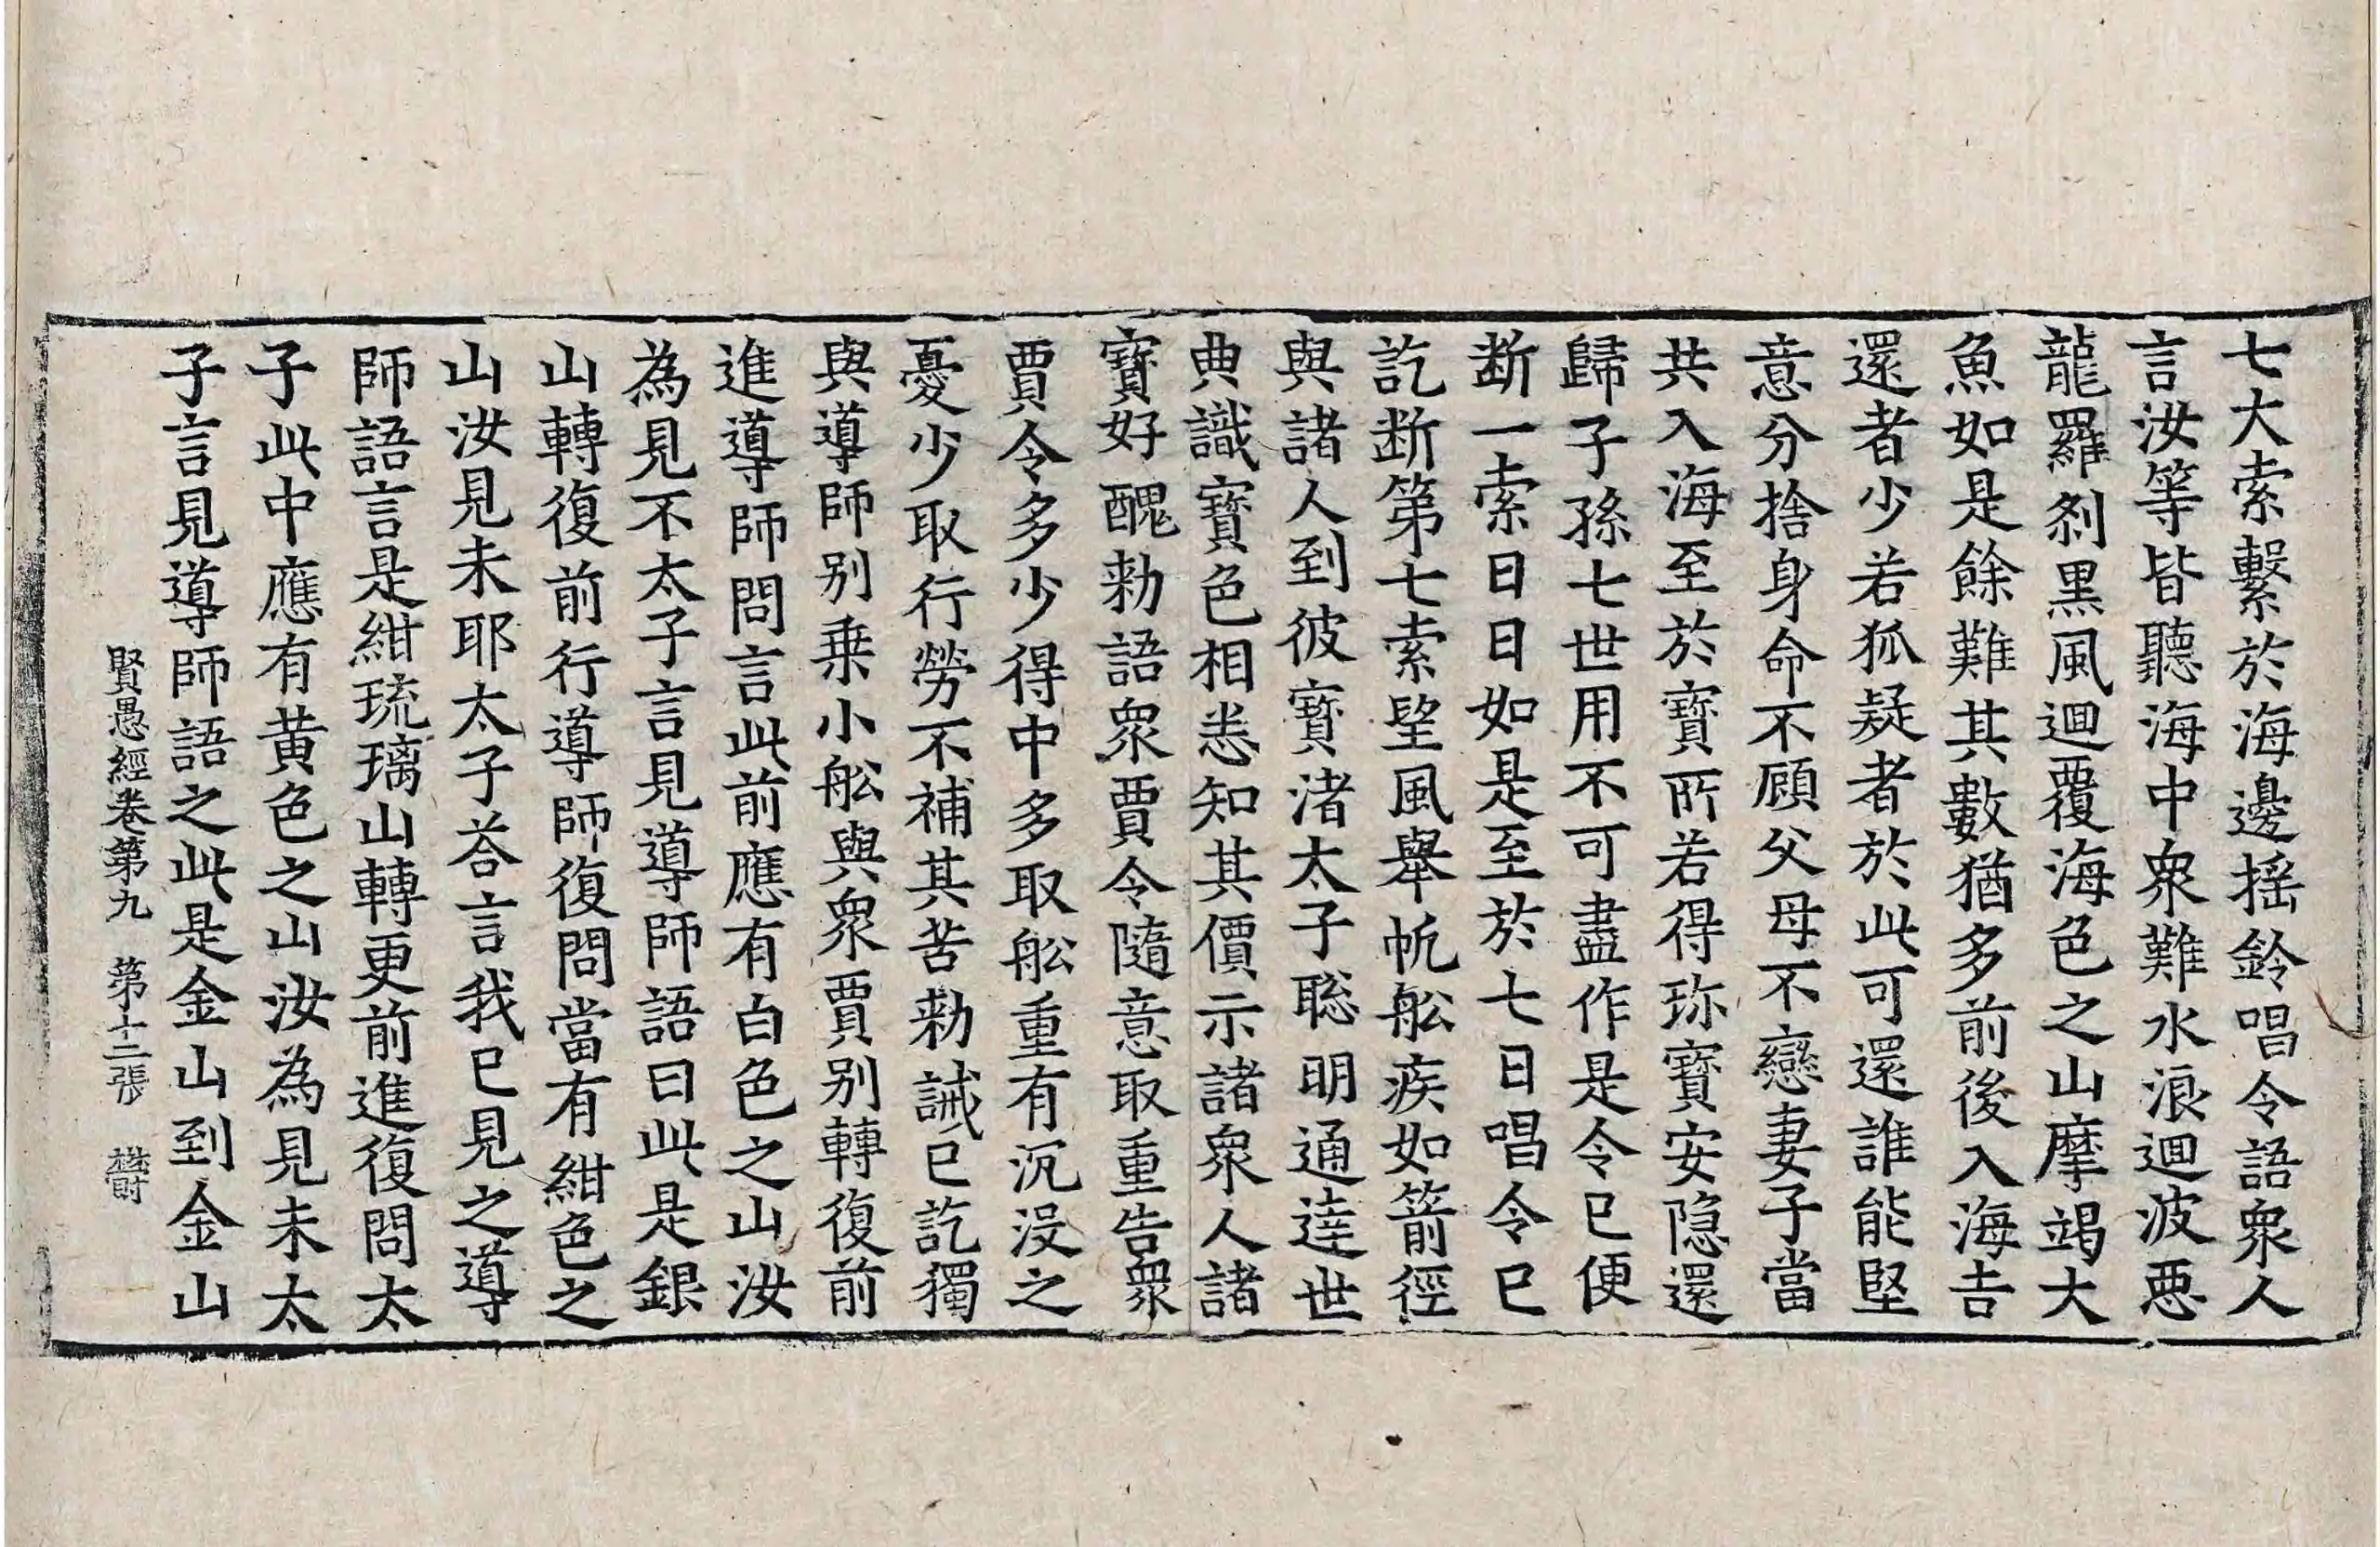 七大索繫於海邊揺鈴唱令語衆人
言汝等皆聽海中衆難水浪迴波惡
龍羅刹黒風迴覆海色之山摩竭大
魚如是餘難其數猶多前後入海吉
還者少若狐疑者於此可還誰能堅
意分捨身命不顧父母不戀妻子當
共入海至於寶所若得珎寶安隐還
歸子孫七世用不可盡作是令已便
断一索日日如是至於七日唱令已
訖断第七索望風舉帆舩疾如箭徑
與諸人到彼寶渚太子聡明通達世
典識寶色相悉知其價示諸衆人諸
寶好醜勑語衆賈令隨意取重告衆
賈令多少得中多取舩重有沉没之
憂少取行勞不補其苦勑誡已訖獨
與導師别乗小舩與衆賈别轉復前
進導師問言此前應有白色之山汝
為見不太子言見導師語曰此是銀
山轉復前行導師復問當有紺色之
山汝見未耶太子荅言我已見之導
師語言是紺琉璃山轉更前進復問太
子此中應有黄色之山汝為見未太
子言見導師語之此是金山到金山
賢愚經卷第九　第十二張　欝